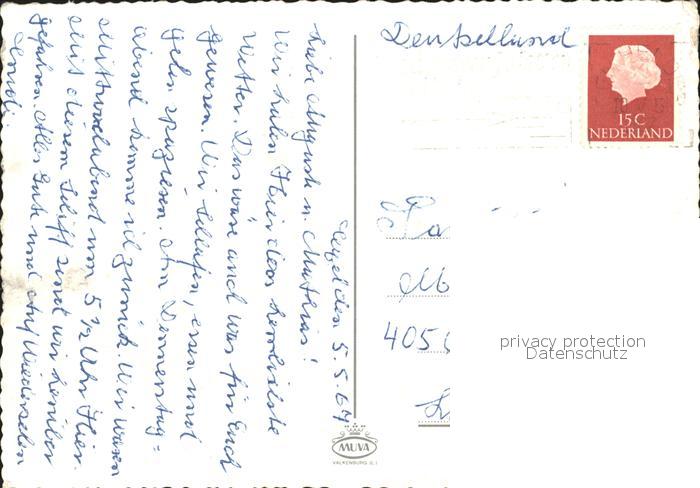 Deutschland
15 C
NEDERLAND
den 5.5.67
Liebe Auguste u. Mathias!
Wir haben Hier das herrlichste
Wetter. Das wäre auch was für Euch
gewesen. Wir schlafen, essen und
gehen spazieren. Am Donnerstag-
abend komme ich zurück. Wir waren
Mittwochabend um 5 1/2 Uhr Hier.
Mit diesem Schiff sind wir herüber
gefahren. Alles Gute und Auf Wiedersehen
405
privacy protection
Datenschutz
MUVA
VALKENBURG (L.)